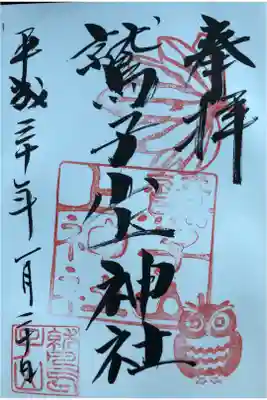 奉拝
鷲子山上神社
平成三十年一月二十日